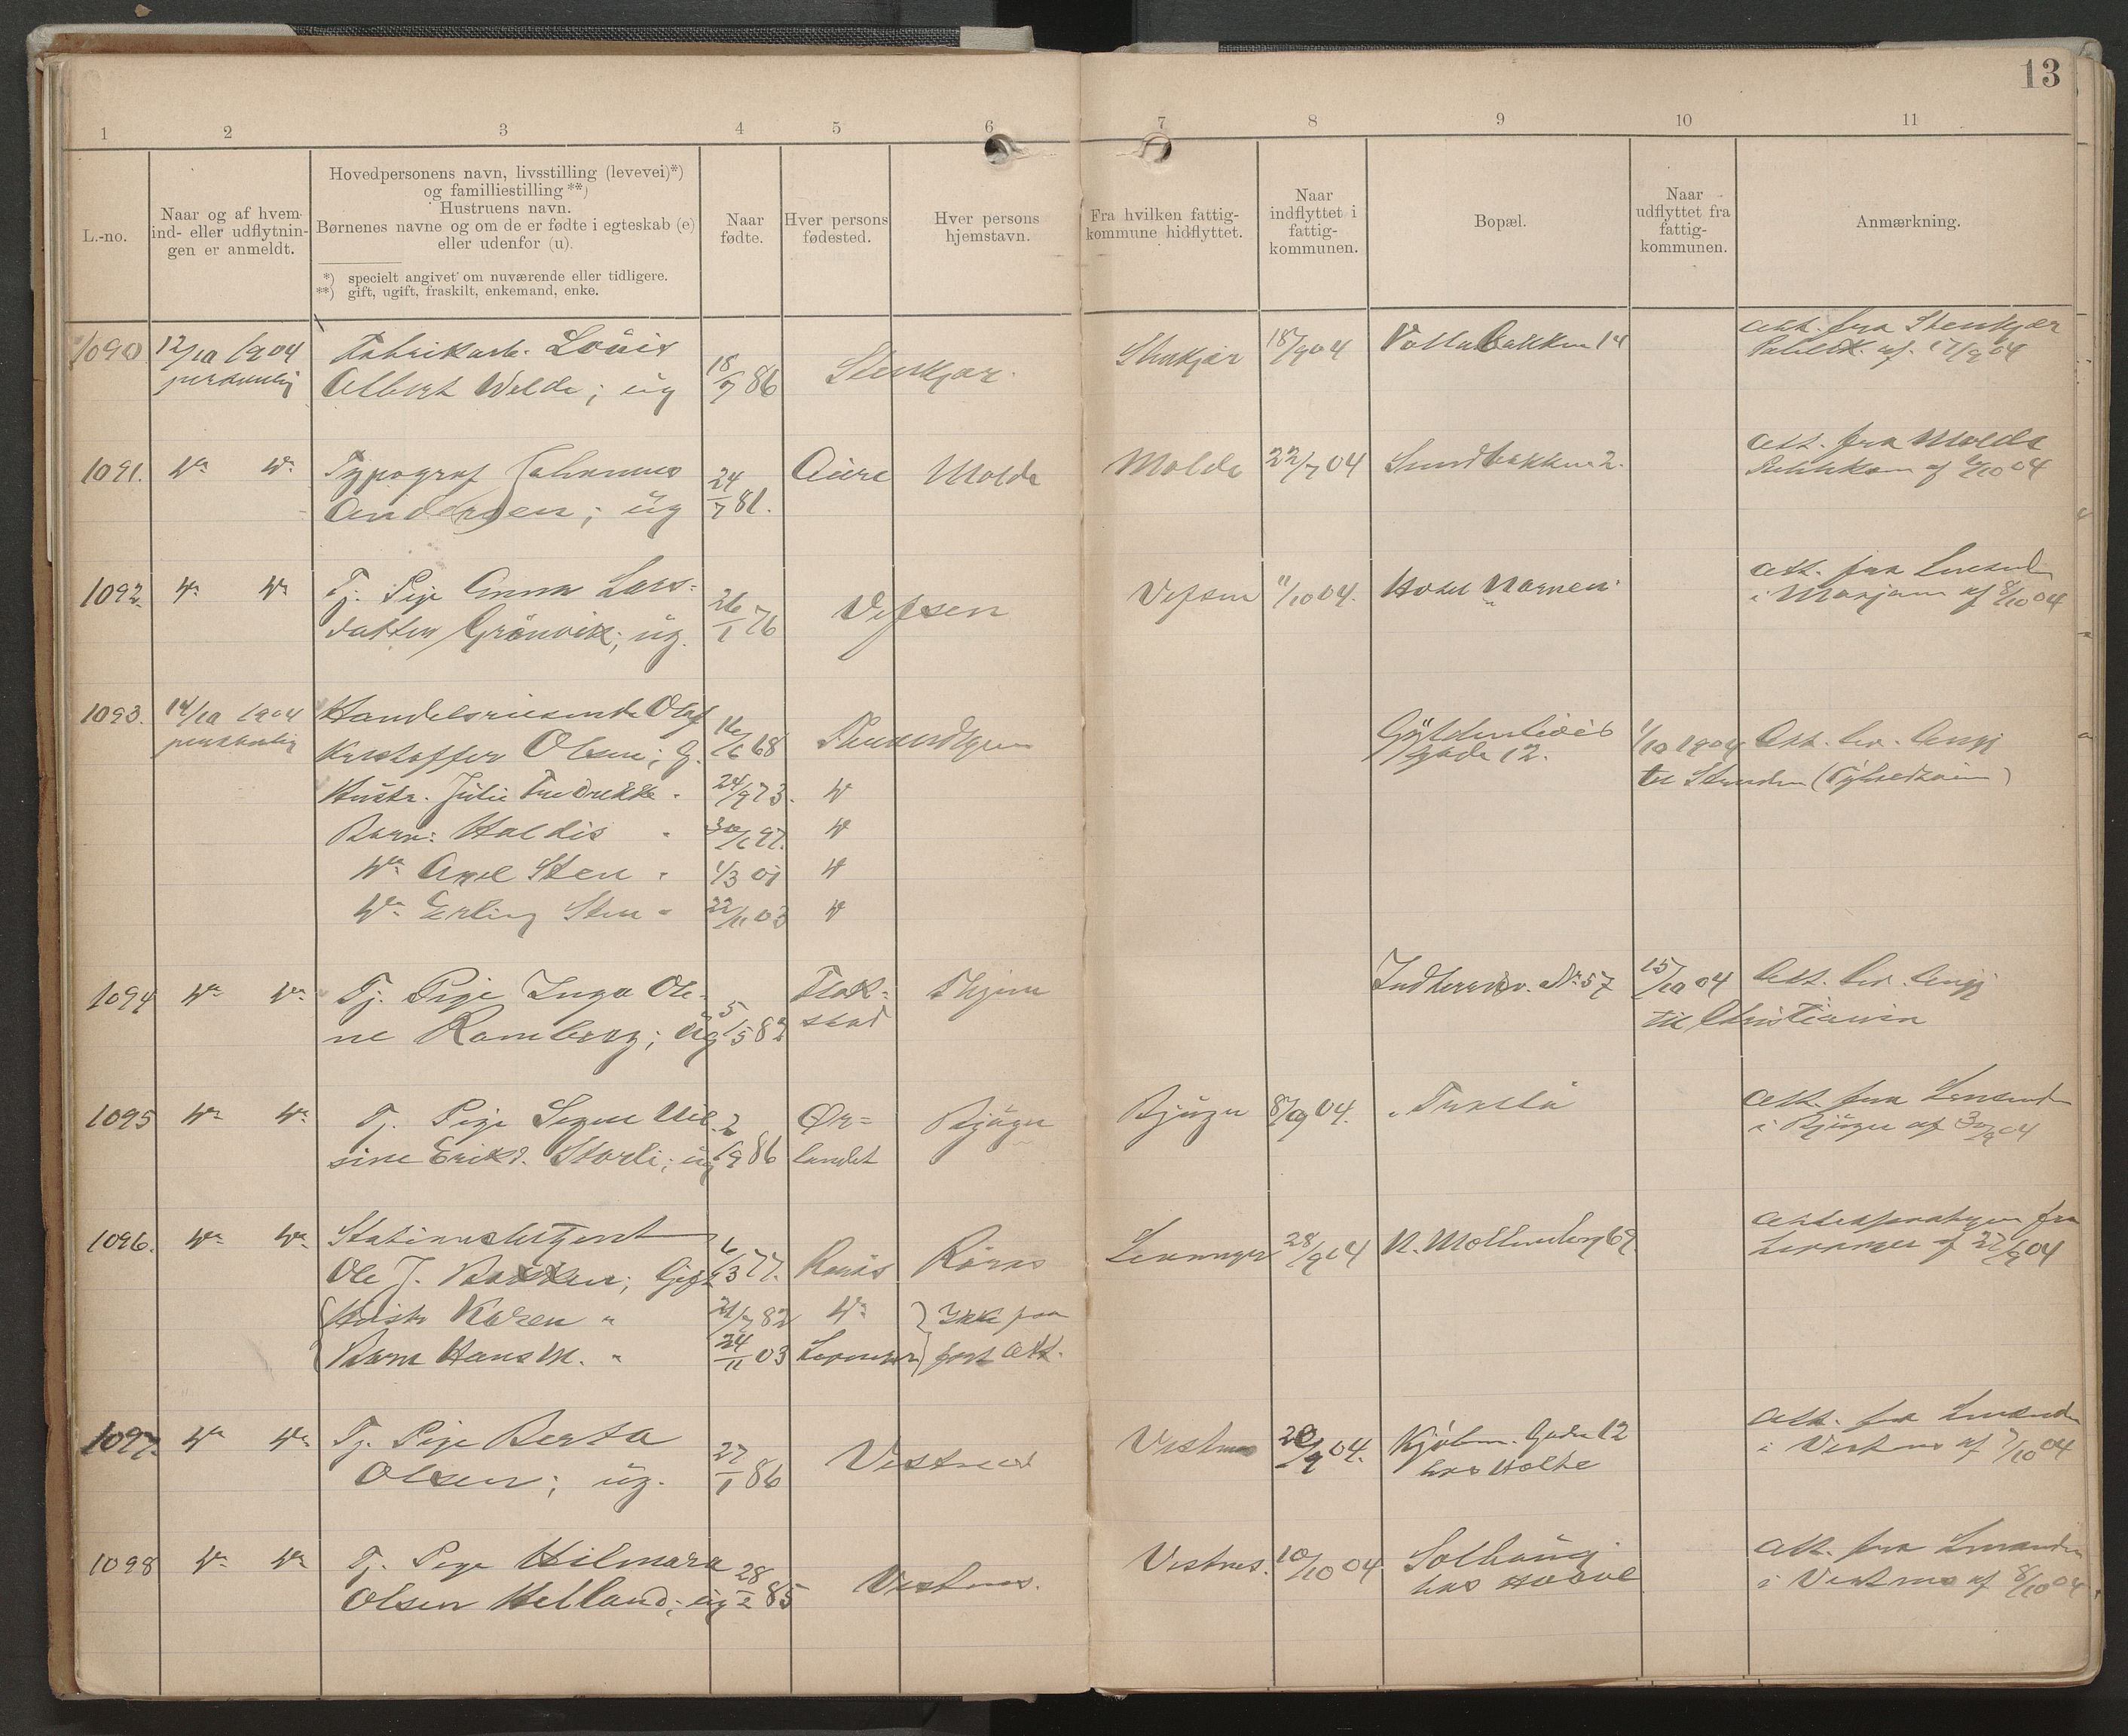 13
1 2 3 4 5 6 7 8 9 10 11
L.-no.
Naar og af hvem
ind- eller udflytnin-
gen er anmeldt.
Hovedpersonens navn, livsstilling (levevei)*)
og familliestilling **)
Hustruens navn.
Børnenes navne og om de er fødte i egteskab (e)
eller udenfor (u).
*) specielt angivet om nuværende eller tidligere.
**) gift, ugift, fraskilt, enkemand, enke.
Naar
fødte.
Hver persons
fødested.
Hver persons
hjemstavn.
Fra hvilken fattig-
kommune hidflyttet.
Naar
indflyttet i
fattig-
kommunen.
Bopæl.
Naar
udflyttet fra
fattig-
kommunen.
Anmærkning.
1090 12/10 1904 Fabrikarb. Louis Stenkjær 18/9 04 Voldabakken 14 Att. fra Stenkjær
personlig Albert Welde; ug 18/7 86 Stenkjær Politik. af 17/9 04
1091. Do Do Typograf Johannes 24/7 81. Aure Molde Molde 22/7 04 Sundbakken 2. Att. fra Molde
Andersen; ug Politikam af 6/10 04
1092. Do Do Tj. Pige Anna Lars- 26/1 76 Vefsen Vefsen 11/10 04. Hotel Nornen Att. fra Lensmd
datter Grønvik; ug. i Mosjøen af 8/10 04
1093. 14/10 1904 Handelsreisende Olaf 16/6 68 Trondhjem Gyldenløves 1/10 1904 Att. bev. Angj
personlig Kristoffer Olsen; G. gade 12. til Strinden (Tyholdtveien)
Hustr. Julie Fredrikke " 24/9 73. Do
Barn: Haldis " 30/6 97. Do
Do Axel Sten " 1/3 01 Do
Do Erling Sten " 22/11 03 Do
1094 Do Do Tj. Pige Inga Ole- 5/5 82 Flak- Thjem Indherredsv. No 57 15/10 04 Att. bev. Angj
ne Ramberg; ug stad til Christiania
1095 Do Do Tj. Pige Signe Nil- 2/9 86 Ør- Bjugn Bjugn 8/9 04. Att. fra Lensmd
sine Eriksd. Storli; ug landet i Bjugn af 30/9 04
1096. Do Do Stationsbetjent 6/3 77. Røros Røros Levanger 28/9 04 N. Møllenberg 69. Attest fra
Ole J. Bakken; Gift Levanger af 27/9 04
Hustr Karen " 21/7 82 Do Ikke paa
Barn Hans M. " 24/11 03 Levanger ført Att.
1097. Do Do Tj. Pige Berta 27/1 86 Vestnes Vestnes 20/9 04. Kjøbm. Gaden 12 Att. fra Lensmd
Olsen; ug. hos Holte i Vestnes af 7/10 04
1098 Do Do Tj. Pige Hilmara 28/2 85 Vestnes. Vestnes. 10/10 04 Solhaug Att. fra Lensmanden
Olsen Helland; ug hos i Vestnes af 8/10 04